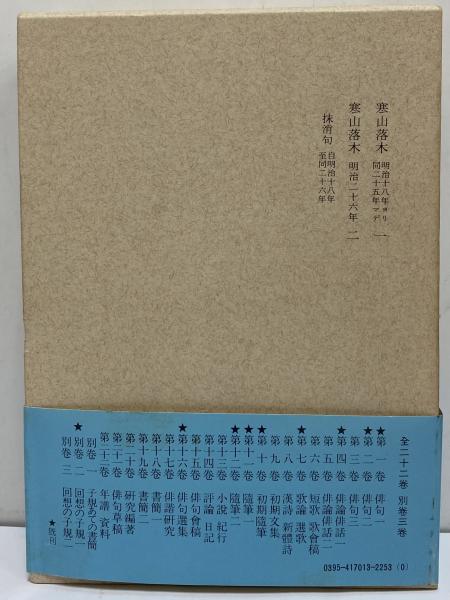 寒山落木 明治十八年ヨリ
同二十五年マデ 一
寒山落木 明治二十六年 二
抹消句 自明治十八年
至同二十六年
全二十二巻 別巻三巻
★第一巻 俳句一
★第二巻 俳句二
第三巻 俳句三
★第四巻 俳論俳話一
第五巻 俳論俳話二
第六巻 短歌 歌會稿
★第七巻 歌論 選歌
第八巻 漢詩 新體詩
第九巻 初期文集
★第十巻 初期隨筆
★第十一巻 隨筆一
★第十二巻 隨筆二
第十三巻 小説 紀行
第十四巻 評論 日記
第十五巻 俳句會稿
★第十六巻 俳句選集
第十七巻 俳諧研究
第十八巻 書簡一
第十九巻 書簡二
第二十巻 研究編著
第二十一巻 俳句草稿
第二十二巻 年譜 資料
別巻一 子規あての書簡
★別巻二 回想の子規一
別巻三 回想の子規二
★既刊
0395-417013-2253(0)